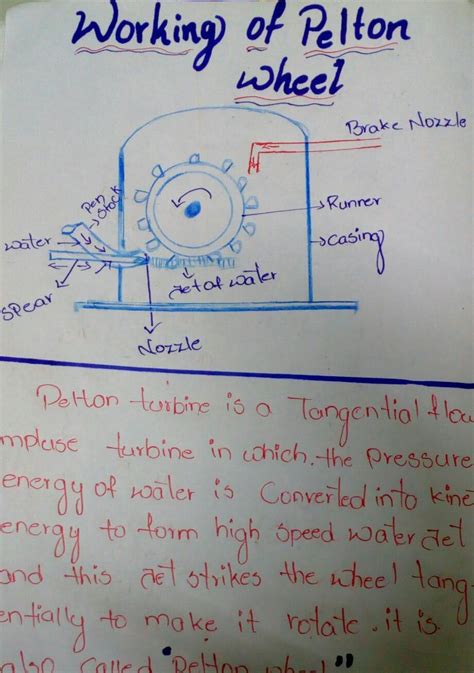 Working of Pelton
wheel
Brake Nozzle
Pen
stock
Runner
water
casing
Jet of water
Spear
Nozzle
Pelton turbine is a Tangential flow
mpluse turbine in which. the pressure
energy of water is Converted into kinet
energy to form high speed water Jet
and this Jet strikes the wheel tang-
entially to make it rotate. it is
also called "Pelton wheel"